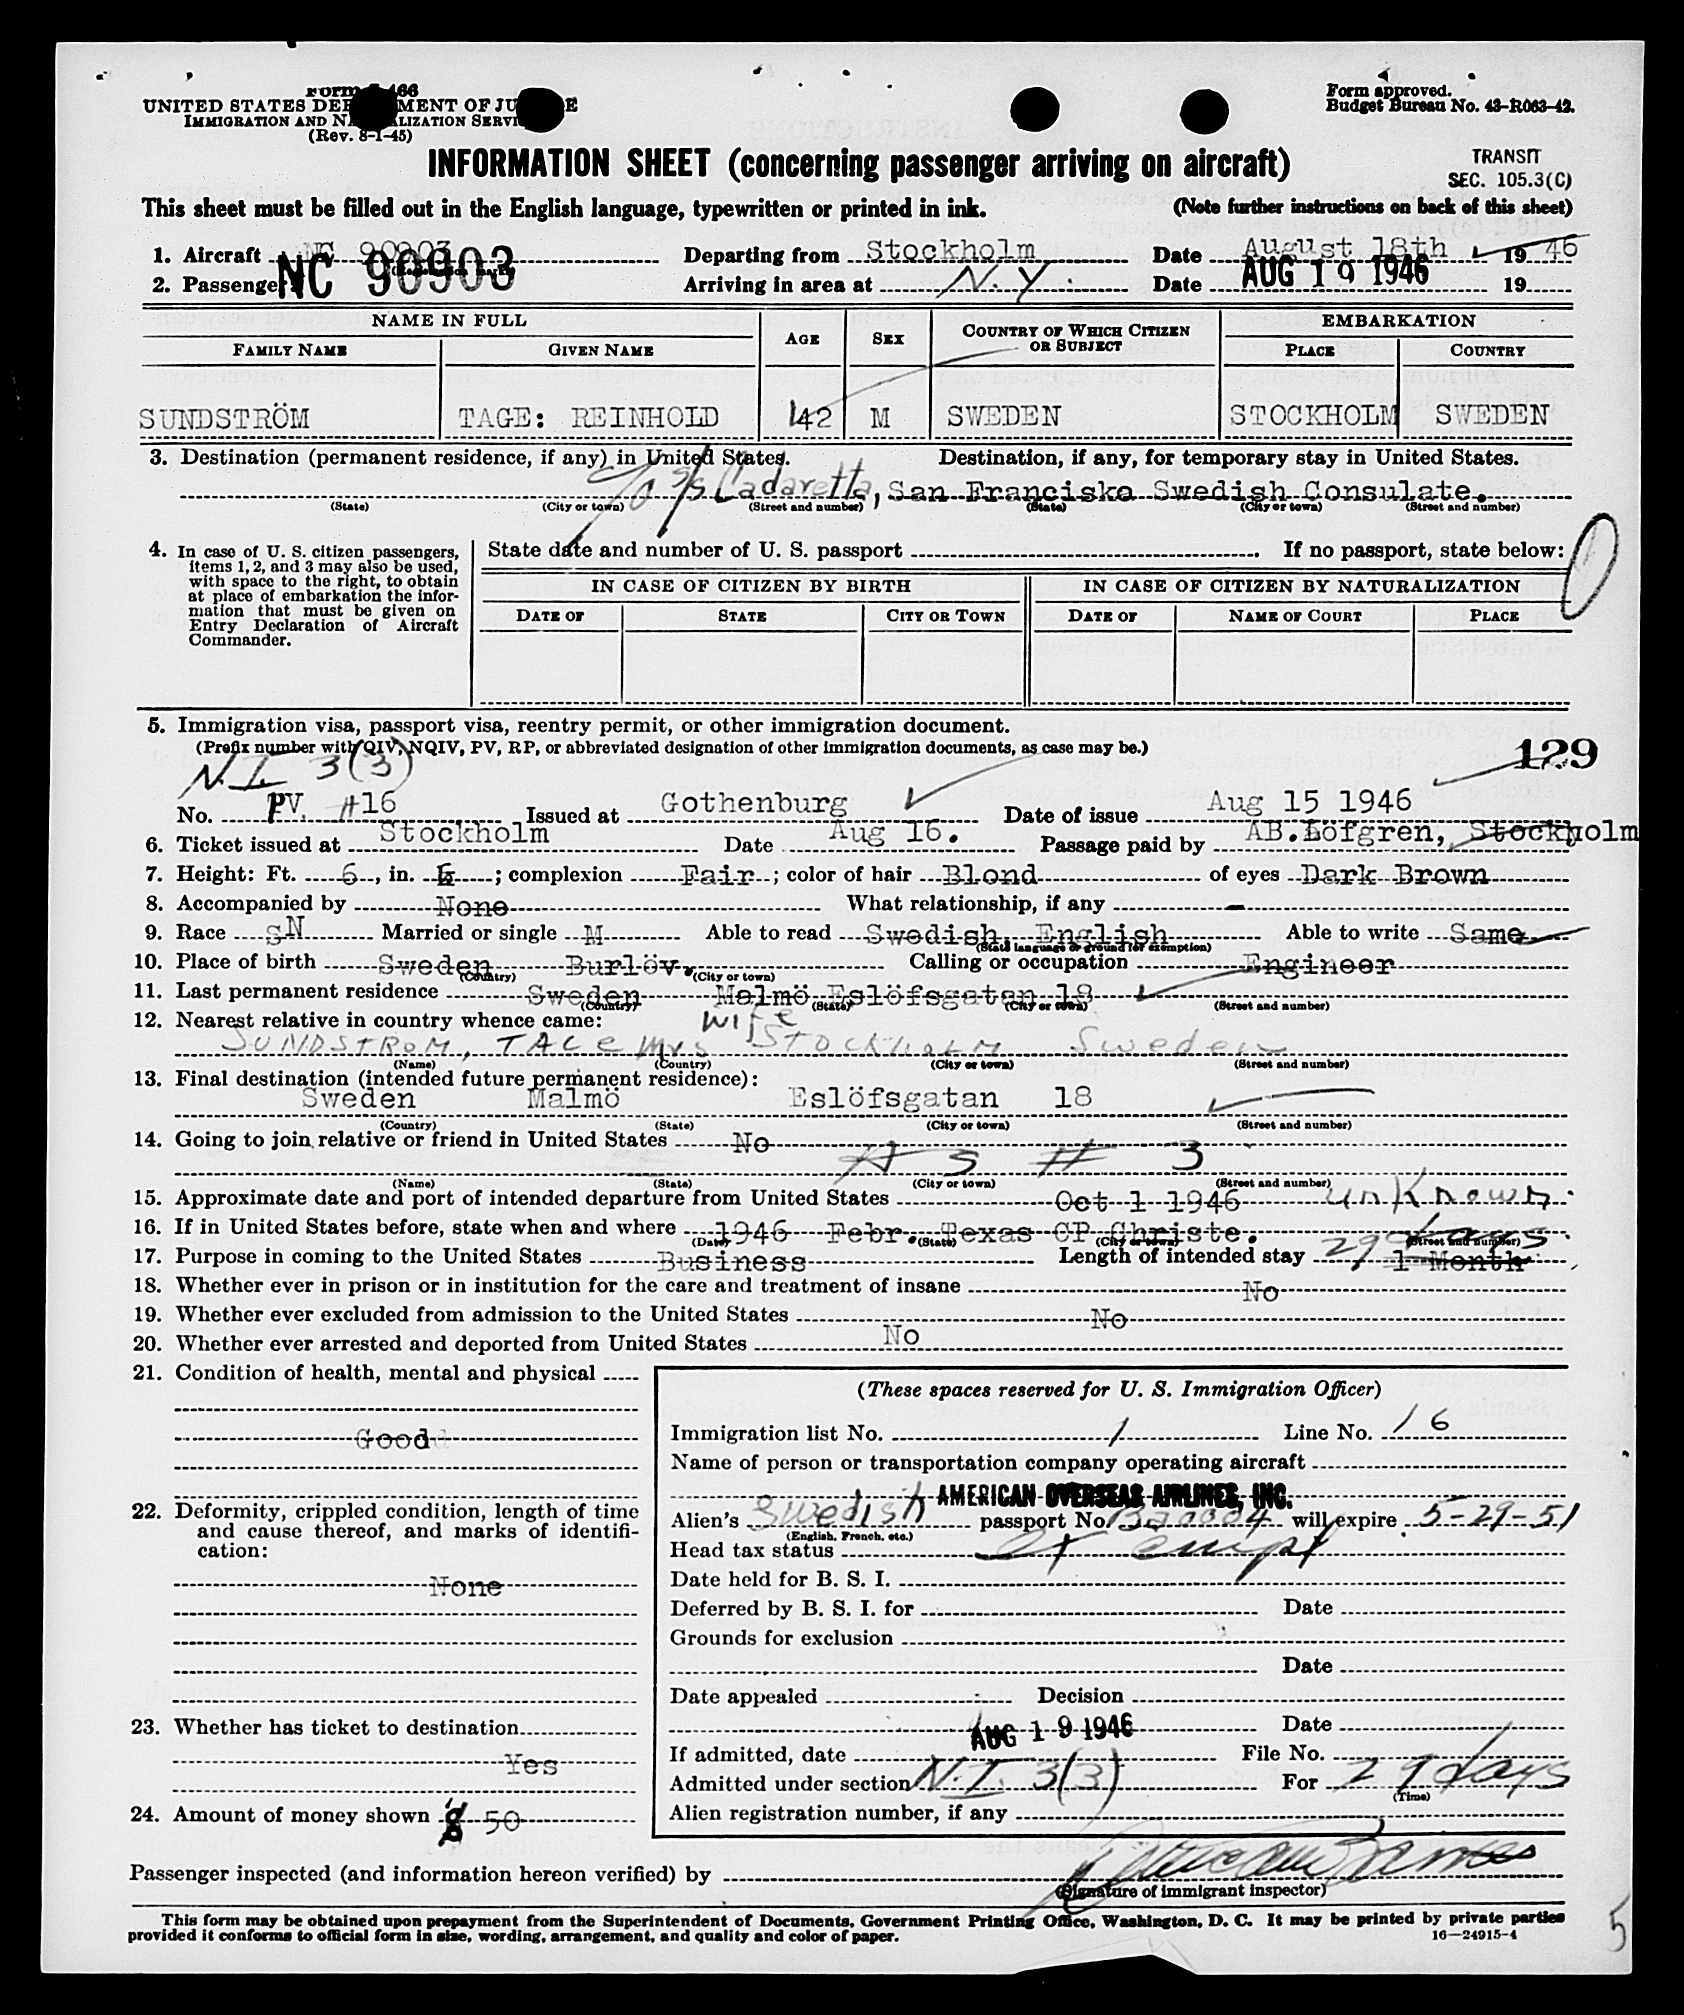 Form I-466
UNITED STATES DEPARTMENT OF JUSTICE
IMMIGRATION AND NATURALIZATION SERVICE
(Rev. 8-1-45)
Form approved.
Budget Bureau No. 43-R063-42.
INFORMATION SHEET (concerning passenger arriving on aircraft)
TRANSIT
SEC. 105.3(C)
This sheet must be filled out in the English language, typewritten or printed in ink.
(Note further instructions on back of this sheet)
1. Aircraft NC 90903 Departing from Stockholm Date August 18th 1946
NC 90903
2. Passenger Arriving in area at N.Y. Date AUG 19 1946 19
NAME IN FULL AGE SEX COUNTRY OF WHICH CITIZEN OR SUBJECT EMBARKATION
FAMILY NAME GIVEN NAME PLACE COUNTRY
SUNDSTRÖM TAGE: REINHOLD 42 M SWEDEN STOCKHOLM SWEDEN
3. Destination (permanent residence, if any) in United States. Destination, if any, for temporary stay in United States.
% S/S Cadaretta, San Francisko Swedish Consulate.
(State) (City or town) (Street and number) (State) (City or town) (Street and number)
4. In case of U. S. citizen passengers, items 1, 2, and 3 may also be used, with space to the right, to obtain at place of embarkation the information that must be given on Entry Declaration of Aircraft Commander.
State date and number of U. S. passport If no passport, state below:
IN CASE OF CITIZEN BY BIRTH IN CASE OF CITIZEN BY NATURALIZATION
DATE OF STATE CITY OR TOWN DATE OF NAME OF COURT PLACE
5. Immigration visa, passport visa, reentry permit, or other immigration document.
(Prefix number with QIV, NQIV, PV, RP, or abbreviated designation of other immigration documents, as case may be.)
129
N.I. 3(3)
No. PV. #16 Issued at Gothenburg Date of issue Aug 15 1946
6. Ticket issued at Stockholm Date Aug 16. Passage paid by AB.Löfgren, Stockholm
7. Height: Ft. 6, in. ; complexion Fair ; color of hair Blond of eyes Dark Brown
8. Accompanied by None What relationship, if any -
9. Race SN Married or single M Able to read Swedish, English Able to write Same
(State language or ground for exemption)
10. Place of birth Sweden Burlöv. Calling or occupation Engineer
(Country) (City or town)
11. Last permanent residence Sweden Malmö Eslöfsgatan 18
(Country) (State) (City or town) (Street and number)
12. Nearest relative in country whence came: Wife
SUNDSTROM, TAGE Mrs STOCKHOLM Sweden
(Name) (Country) (City or town) (Street and number)
13. Final destination (intended future permanent residence):
Sweden Malmö Eslöfsgatan 18
(Country) (State) (City or town) (Street and number)
14. Going to join relative or friend in United States No
AS # 3
(Name) (State) (City or town) (Street and number)
15. Approximate date and port of intended departure from United States Oct 1 1946 unknown
16. If in United States before, state when and where 1946 Febr. Texas CP Christe.
(Date) (State) (City or town) (Street and number)
17. Purpose in coming to the United States Business Length of intended stay 29 days 1 Month
18. Whether ever in prison or in institution for the care and treatment of insane No
19. Whether ever excluded from admission to the United States No
20. Whether ever arrested and deported from United States No
21. Condition of health, mental and physical
Good
22. Deformity, crippled condition, length of time and cause thereof, and marks of identification:
None
23. Whether has ticket to destination
Yes
24. Amount of money shown $ 50
(These spaces reserved for U. S. Immigration Officer)
Immigration list No. 1 Line No. 16
Name of person or transportation company operating aircraft
AMERICAN OVERSEAS AIRLINES, INC.
Alien's Swedish passport No. will expire 5-29-51
(English, French, etc.)
Head tax status Exempt
Date held for B. S. I.
Deferred by B. S. I. for Date
Grounds for exclusion
Date
Date appealed Decision
Date
If admitted, date AUG 19 1946 File No.
Admitted under section N.I. 3(3) For 29 days
(Time)
Alien registration number, if any
Passenger inspected (and information hereon verified) by
(Signature of immigrant inspector)
This form may be obtained upon prepayment from the Superintendent of Documents, Government Printing Office, Washington, D. C. It may be printed by private parties
provided it conforms to official form in size, wording, arrangement, and quality and color of paper.
16—24915-4
5